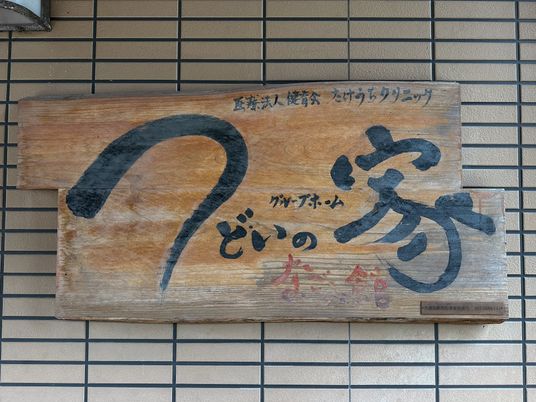 医療法人健育会 たけうちクリニック
グループホーム
つどいの家
館